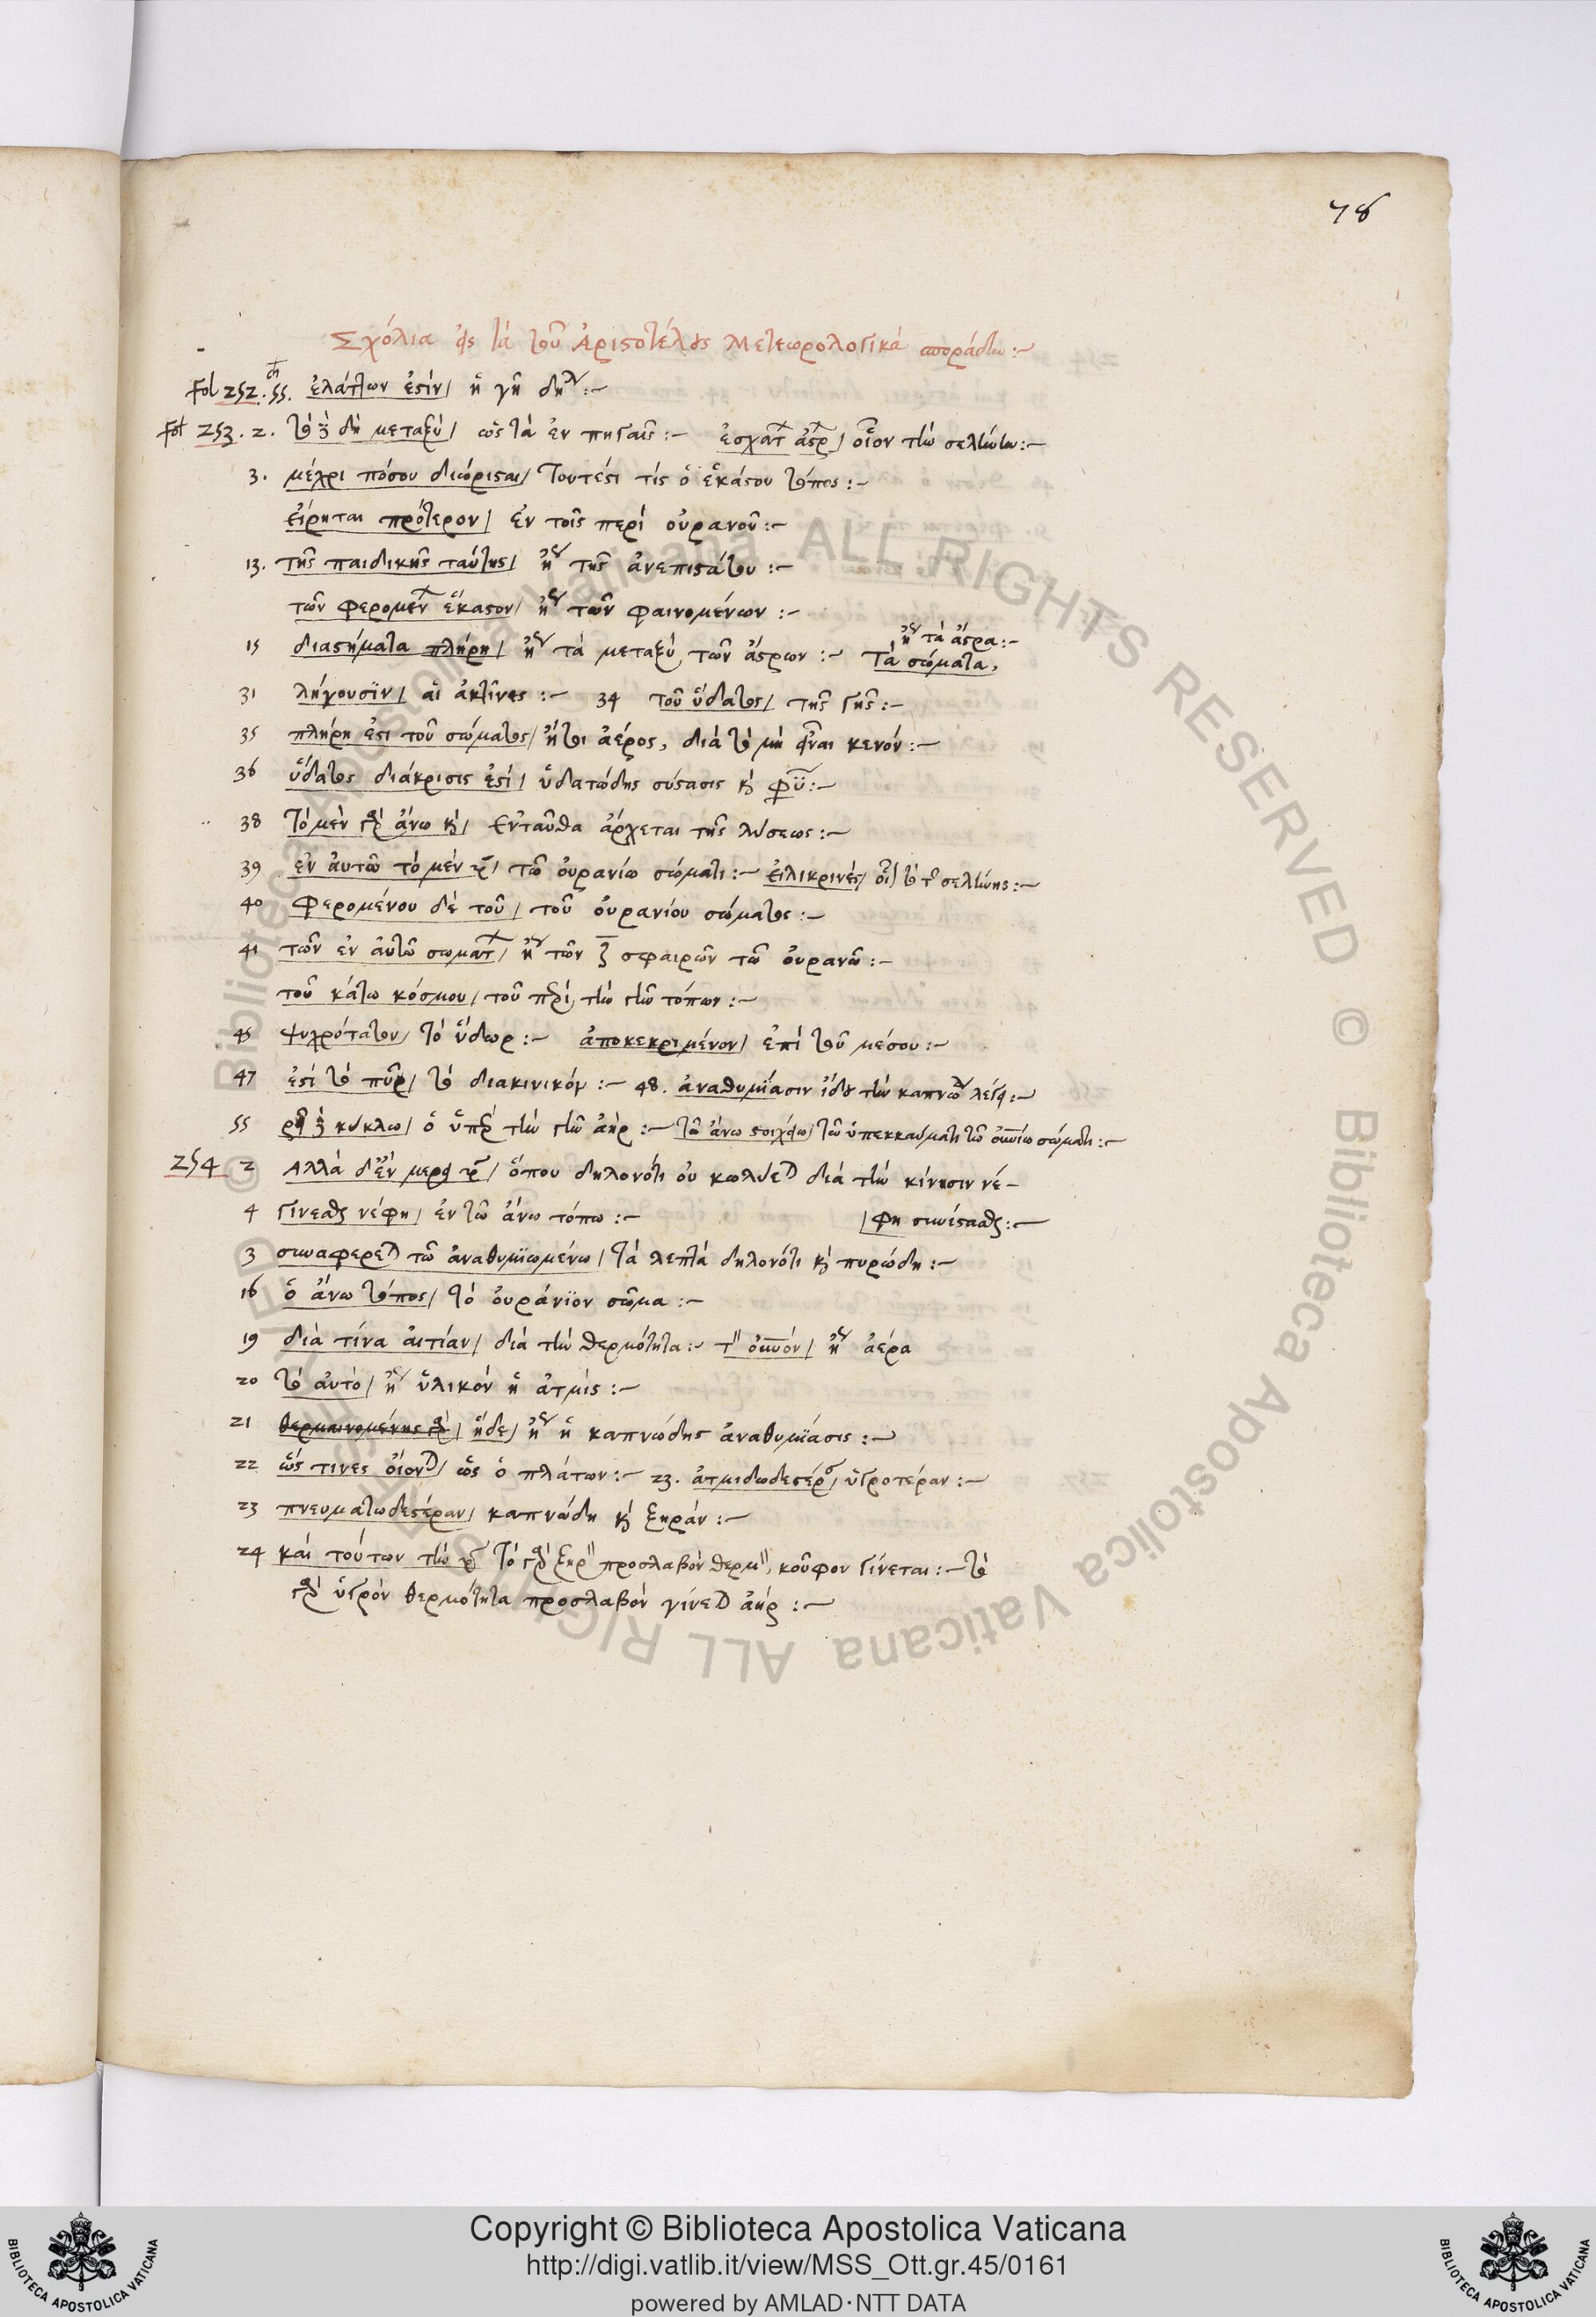 78
Σχόλια εἰς τὰ τοῦ Ἀριστοτέλους Μετεωρολογικὰ
Fol 252. 55. ἐλάττων ἐστίν / ἡ γῆ δηλ :~
Fol 253. 2. τὸ δὴ μεταξύ / ὡς τὰ ἐν πηγαῖς :~ ἐσχατ ἀστρ / οἷον τὴν σελήνην :~
3. μέχρι πόσου διώρισται / τουτέστι τίς ὁ ἑκάστου τόπος :~
εἴρηται πρότερον / ἐν τοῖς περὶ οὐρανοῦ :~
13. τῆς παιδικῆς ταύτης / ἤγ τῆς ἀνεπιστάτου :~
τῶν φερομέν ἕκαστον / ἤγ τῶν φαινομένων :~
ἤγ τὰ ἄστρα :~
15 διαστήματα πλήρη / ἤγ τὰ μεταξὺ τῶν ἄστρων :~ τὰ σώματα,
31 λήγουσϊν / αἱ ἀκτῖνες :~ 34 τοῦ ὕδατος / τῆς γῆς :~
35 πλήρη ἐστὶ τοῦ σώματος / ἤτοι ἀέρος, διὰ τὸ μὴ εἶναι κενόν :~
36 ὕδατος διάκρισις ἐστί / ὑδατώδης σύστασις κὶ :~
38 τὸ μὲν γὰρ ἄνω κὶ / ἐνταῦθα ἄρχεται τῆς λύσεως :~
39 ἐν αὐτῶ τὸ μὲν / τῶ οὐρανίω σώματι :~ εἰλικρινές / τὸ τ σελήνης :~
40 φερομένου δὲ τοῦ / τοῦ οὐρανίου σώματος :~
41 τῶν ἐν αὐτῶ σωματ / ἤγ τῶν ζ σφαιρῶν τῶ οὐρανῶ :~
τοῦ κάτω κόσμου / τοῦ περὶ τὴν γῆν τόπων :~
45 ψυχρότατον / τὸ ὕδωρ :~ ἀποκεκριμένον / ἐπὶ τοῦ μέσου :~
47 ἐστὶ τὸ πῦρ / τὸ διακινικόν :~ 48. ἀναθυμίασιν ἰδοὺ τὴν καπνώ λέγει :~
55 κύκλω / ὁ ὑπὲρ τὴν γῆν ἀήρ :~ τῶ ἄνω στοιχείω / τῶ ὑπεκκαύματι τῶ οὐνίω σώματι :~
254 2 Ἀλλὰ δ' ἐν μέρει / ὅπου δηλονότι οὐ κωλύεται διὰ τὴν κίνησιν νέ-
4 γίνεσθαι νέφη / ἐν τῶ ἄνω τόπω :~ / φη συνίστασθαι :~
3 συναφέρεται τῶ ἀναθυμϊωμένω / τὰ λεπτὰ δηλονότι κὶ πυρώδη :~
16 ὁ ἄνω τόπος / τὸ οὐράνϊον σῶμα :~
19 διὰ τίνα αἰτίαν / διὰ τὴν θερμότητα :~ τ οὐνόν / ἤγ ἀέρα
20 τὸ αὐτό / ἤγ ὑλικόν ἡ ἀτμίς :~
21 θερμαινομένης γὰρ / ἥδε / ἤγ ἡ καπνώδης ἀναθυμϊάσις :~
22 ὥς τινες οἴονται / ὡς ὁ πλάτων :~ 23. ἀτμιδωδεστέρ / ὑγροτέραν :~
23 πνευματωδεστέραν / καπνώδη κὶ ξηράν :~
24 καὶ τούτων τὴν τὸ γὰρ ξηρ προσλαβὸν θερμ, κοῦφον γίνεται :~ τὸ
γὰρ ὑγρὸν θερμότητα προσλαβὸν γίνεται ἀήρ :~
Copyright © Biblioteca Apostolica Vaticana
http://digi.vatlib.it/view/MSS_Ott.gr.45/0161
powered by AMLAD·NTT DATA
BIBLIOTECA APOSTOLICA VATICANA
BIBLIOTECA APOSTOLICA VATICANA
© Biblioteca Apostolica Vaticana ALL RIGHTS RESERVED © Biblioteca Apostolica Vaticana ALL RIGHTS RESERVED